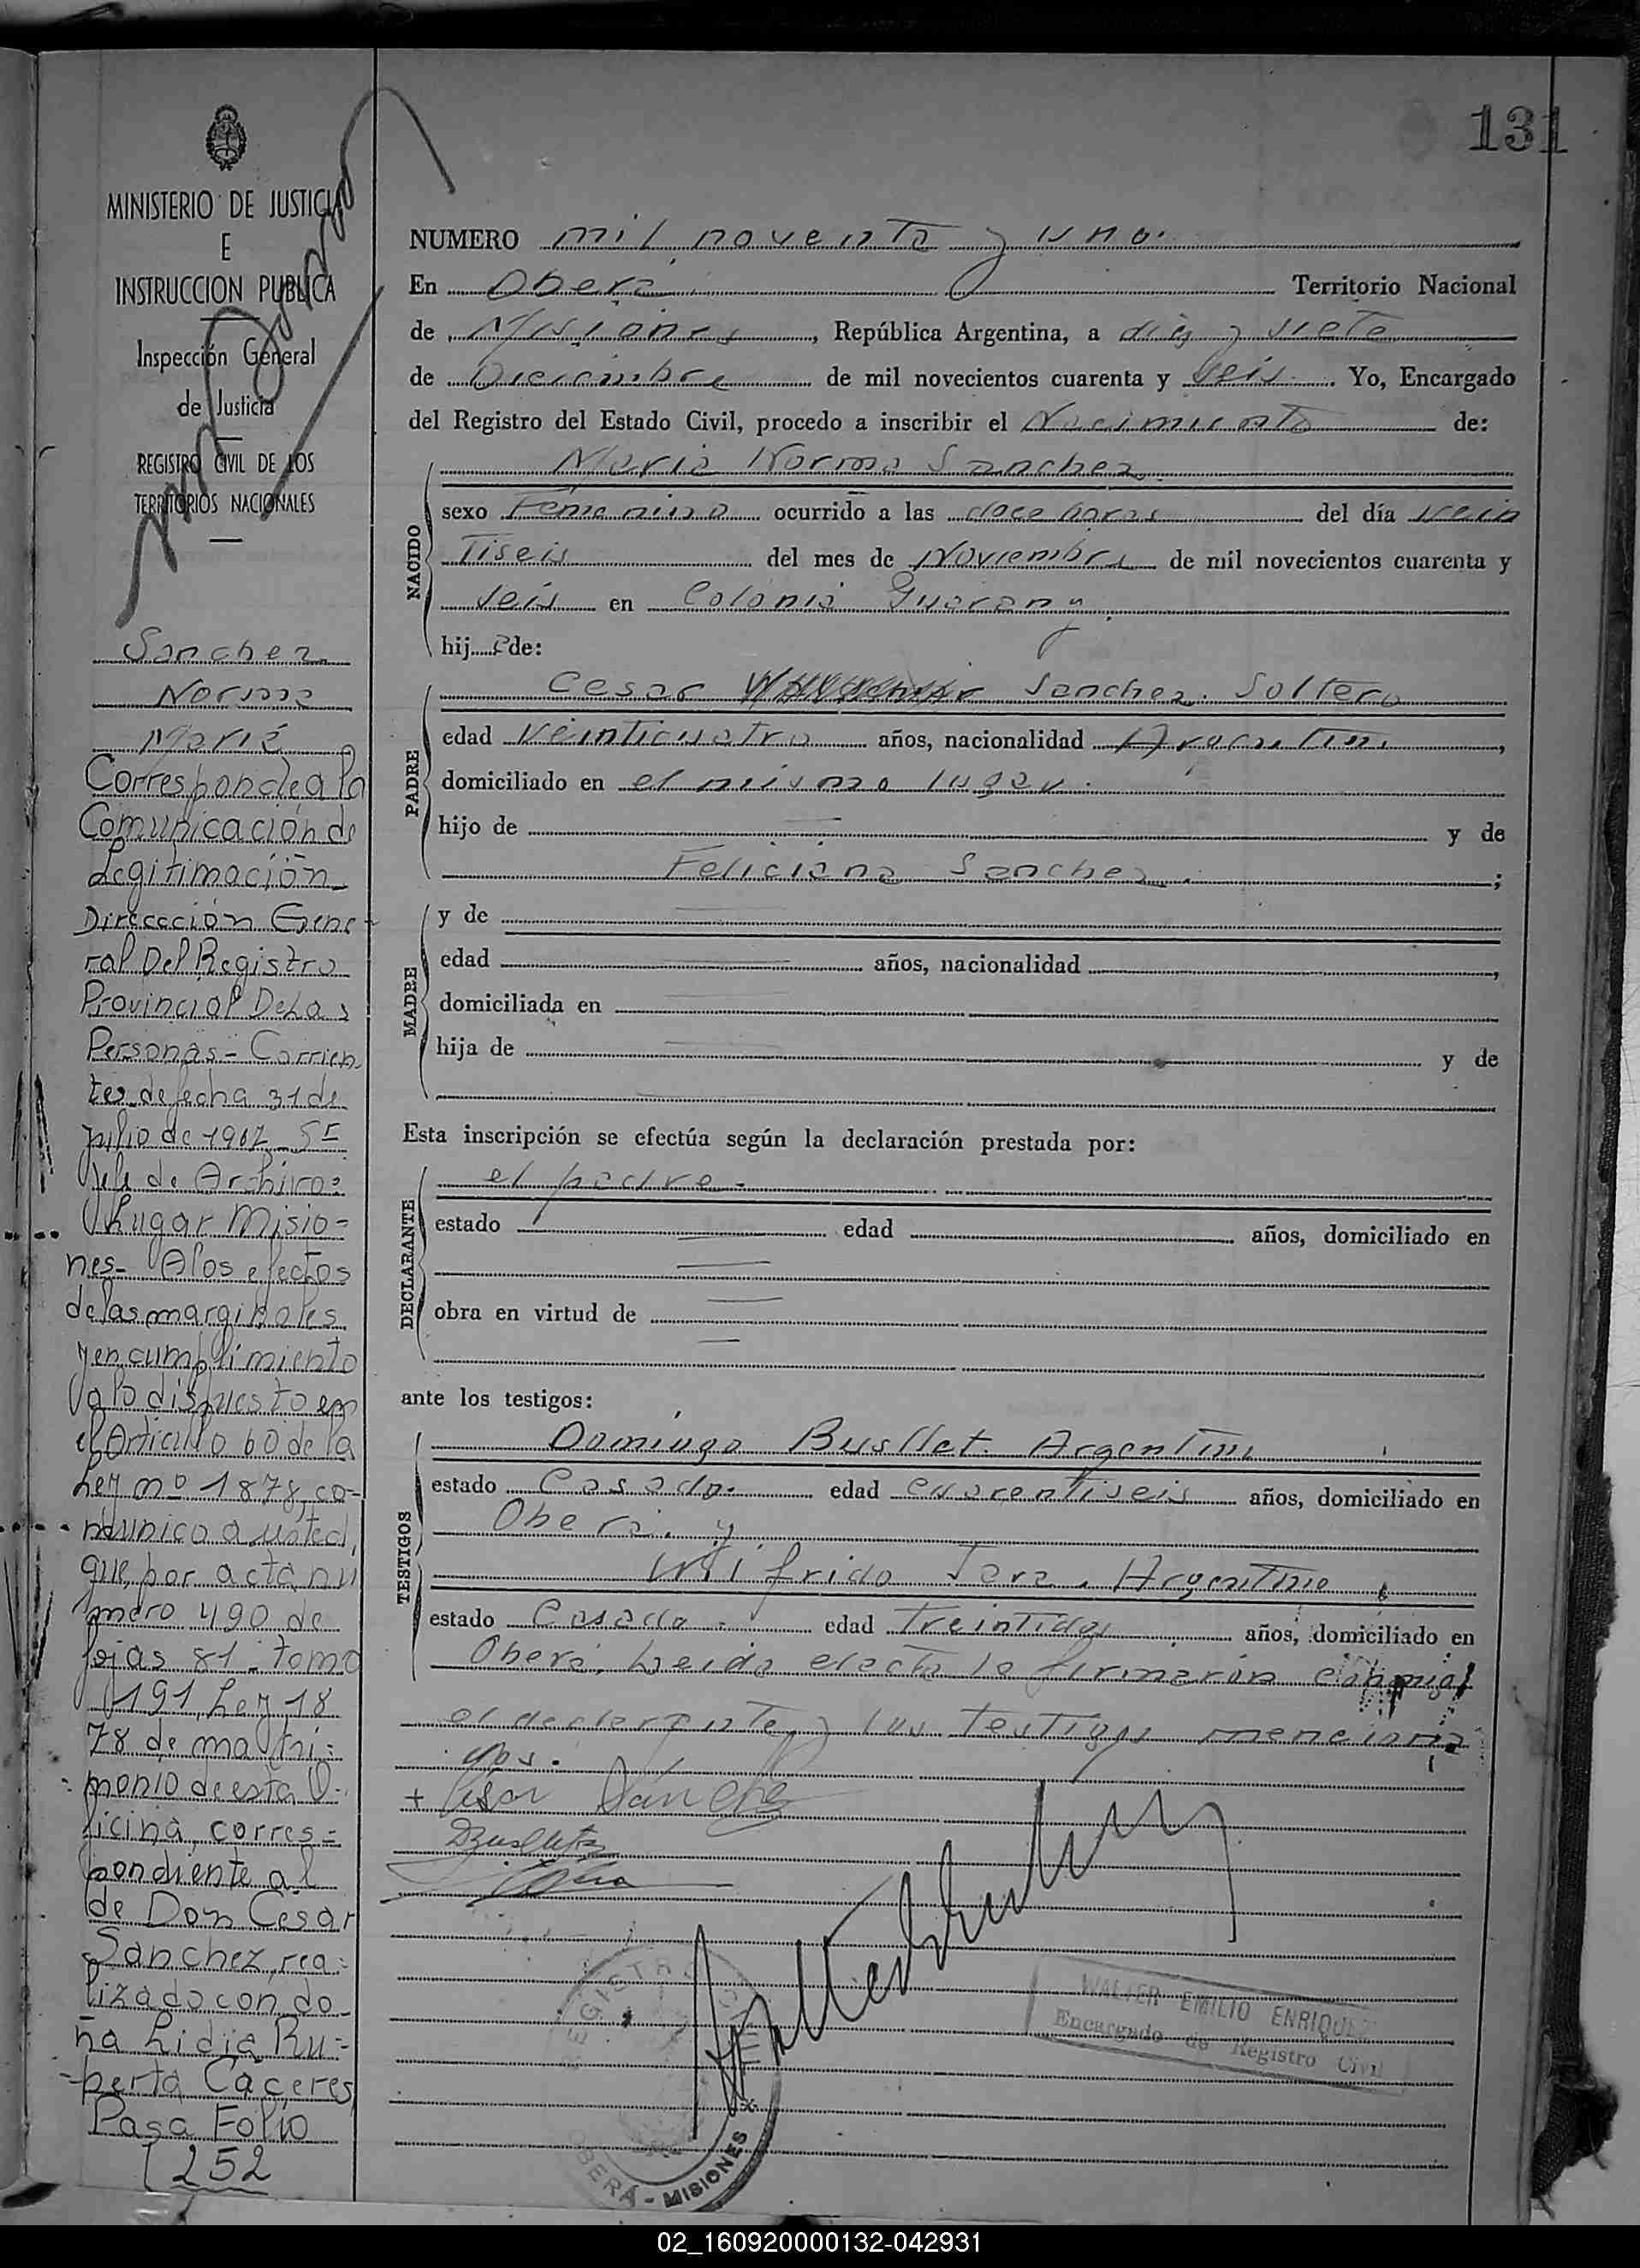 131
MINISTERIO DE JUSTICIA
E
INSTRUCCION PUBLICA
Inspección General
de Justicia
REGISTRO CIVIL DE LOS
TERRITORIOS NACIONALES
Sanchez
Norma
Maria
Corresponde a la
Comunicación de
Legitimación
Direccción Gene-
ral Del Registro
Provincial De Las
Personas - Corrien
tes de fecha 31 de
julio de 1967
Jefe de Archivo:
Lugar Misio-
nes - A los efectos
de las marginales
y en cumplimiento
a lo dispuesto en
el Articulo 60 de la
Ley nº 1878, co-
munico a usted,
que, por acta nu
mero 490 de
fojas 81 - tomo
191, Ley 18
78 de matri-
monio de esta O-
ficina, corres-
pondiente al
de Don Cesar
Sanchez, rea-
lizado con do-
ña Lidia Ru-
perta Caceres
Pasa Folio
252
NUMERO mil noventa y uno.
En Oberá Territorio Nacional
de Misiones, República Argentina, a diez y siete
de Diciembre de mil novecientos cuarenta y seis. Yo, Encargado
del Registro del Estado Civil, procedo a inscribir el Nacimiento de:
Maria Norma Sanchez
NACIDO
sexo Femenino ocurrido a las doce horas del día vein
tiseis del mes de Noviembre de mil novecientos cuarenta y
seis en Colonia Guarany.
hija de:
Cesar Sanchez. Soltero
PADRE
edad veinticuatro años, nacionalidad Argentino,
domiciliado en el mismo lugar.
hijo de — y de
Feliciana Sanchez.;
MADRE
y de —
edad — años, nacionalidad ,
domiciliada en —
hija de — y de
Esta inscripción se efectúa según la declaración prestada por:
DECLARANTE
el padre.
estado — edad años, domiciliado en
—
obra en virtud de —
—
ante los testigos:
TESTIGOS
Domingo Busllet. Argentino
estado Casado. edad cuarentiseis años, domiciliado en
Oberá. y
Wilfrido Jara. Argentino
estado Casado. edad treintidos años, domiciliado en
Oberá. Leida el acta la firmaron conmigo
el declarante y los testigos menciona
dos.
+ Cesar Sánchez
REGISTRO CIVIL
OBERÁ - MISIONES
WALTER EMILIO ENRIQUEZ
Encargado de Registro Civil
02_160920000132-042931